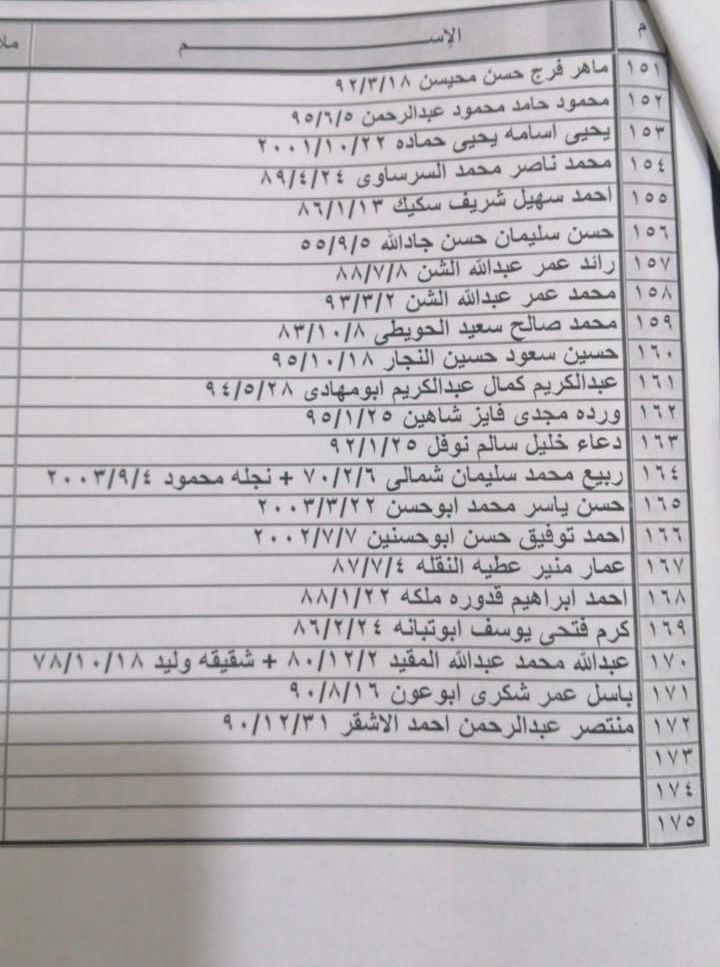 م الإســـــــــــــم ملا
١٥١ ماهر فرج حسن محيسن ٩٢/٣/١٨
١٥٢ محمود حامد محمود عبدالرحمن ٩٥/٦/٥
١٥٣ يحيى اسامه يحيى حماده ٢٠٠١/١٠/٢٢
١٥٤ محمد ناصر محمد السرساوى ٨٩/٤/٢٤
١٥٥ احمد سهيل شريف سكيك ٨٦/١/١٣
١٥٦ حسن سليمان حسن جادالله ٥٥/٩/٥
١٥٧ رائد عمر عبدالله الشن ٨٨/٧/٨
١٥٨ محمد عمر عبدالله الشن ٩٣/٣/٢
١٥٩ محمد صالح سعيد الحويطى ٨٣/١٠/٨
١٦٠ حسين سعود حسين النجار ٩٥/١٠/١٨
١٦١ عبدالكريم كمال عبدالكريم ابومهادى ٩٤/٥/٢٨
١٦٢ ورده مجدى فايز شاهين ٩٥/١/٢٥
١٦٣ دعاء خليل سالم نوفل ٩٢/١/٢٥
١٦٤ ربيع محمد سليمان شمالى ٧٠/٢/٦ + نجله محمود ٢٠٠٣/٩/٤
١٦٥ حسن ياسر محمد ابوحسن ٢٠٠٣/٣/٢٢
١٦٦ احمد توفيق حسن ابوحسنين ٢٠٠٢/٧/٧
١٦٧ عمار منير عطيه النقله ٨٧/٧/٤
١٦٨ احمد ابراهيم قدوره ملكه ٨٨/١/٢٢
١٦٩ كرم فتحى يوسف ابوتبانه ٨٦/٢/٢٤
١٧٠ عبدالله محمد عبدالله المقيد ٨٠/١٢/٢ + شقيقه وليد ٧٨/١٠/١٨
١٧١ باسل عمر شكرى ابوعون ٩٠/٨/١٦
١٧٢ منتصر عبدالرحمن احمد الاشقر ٩٠/١٢/٣١
١٧٣
١٧٤
١٧٥